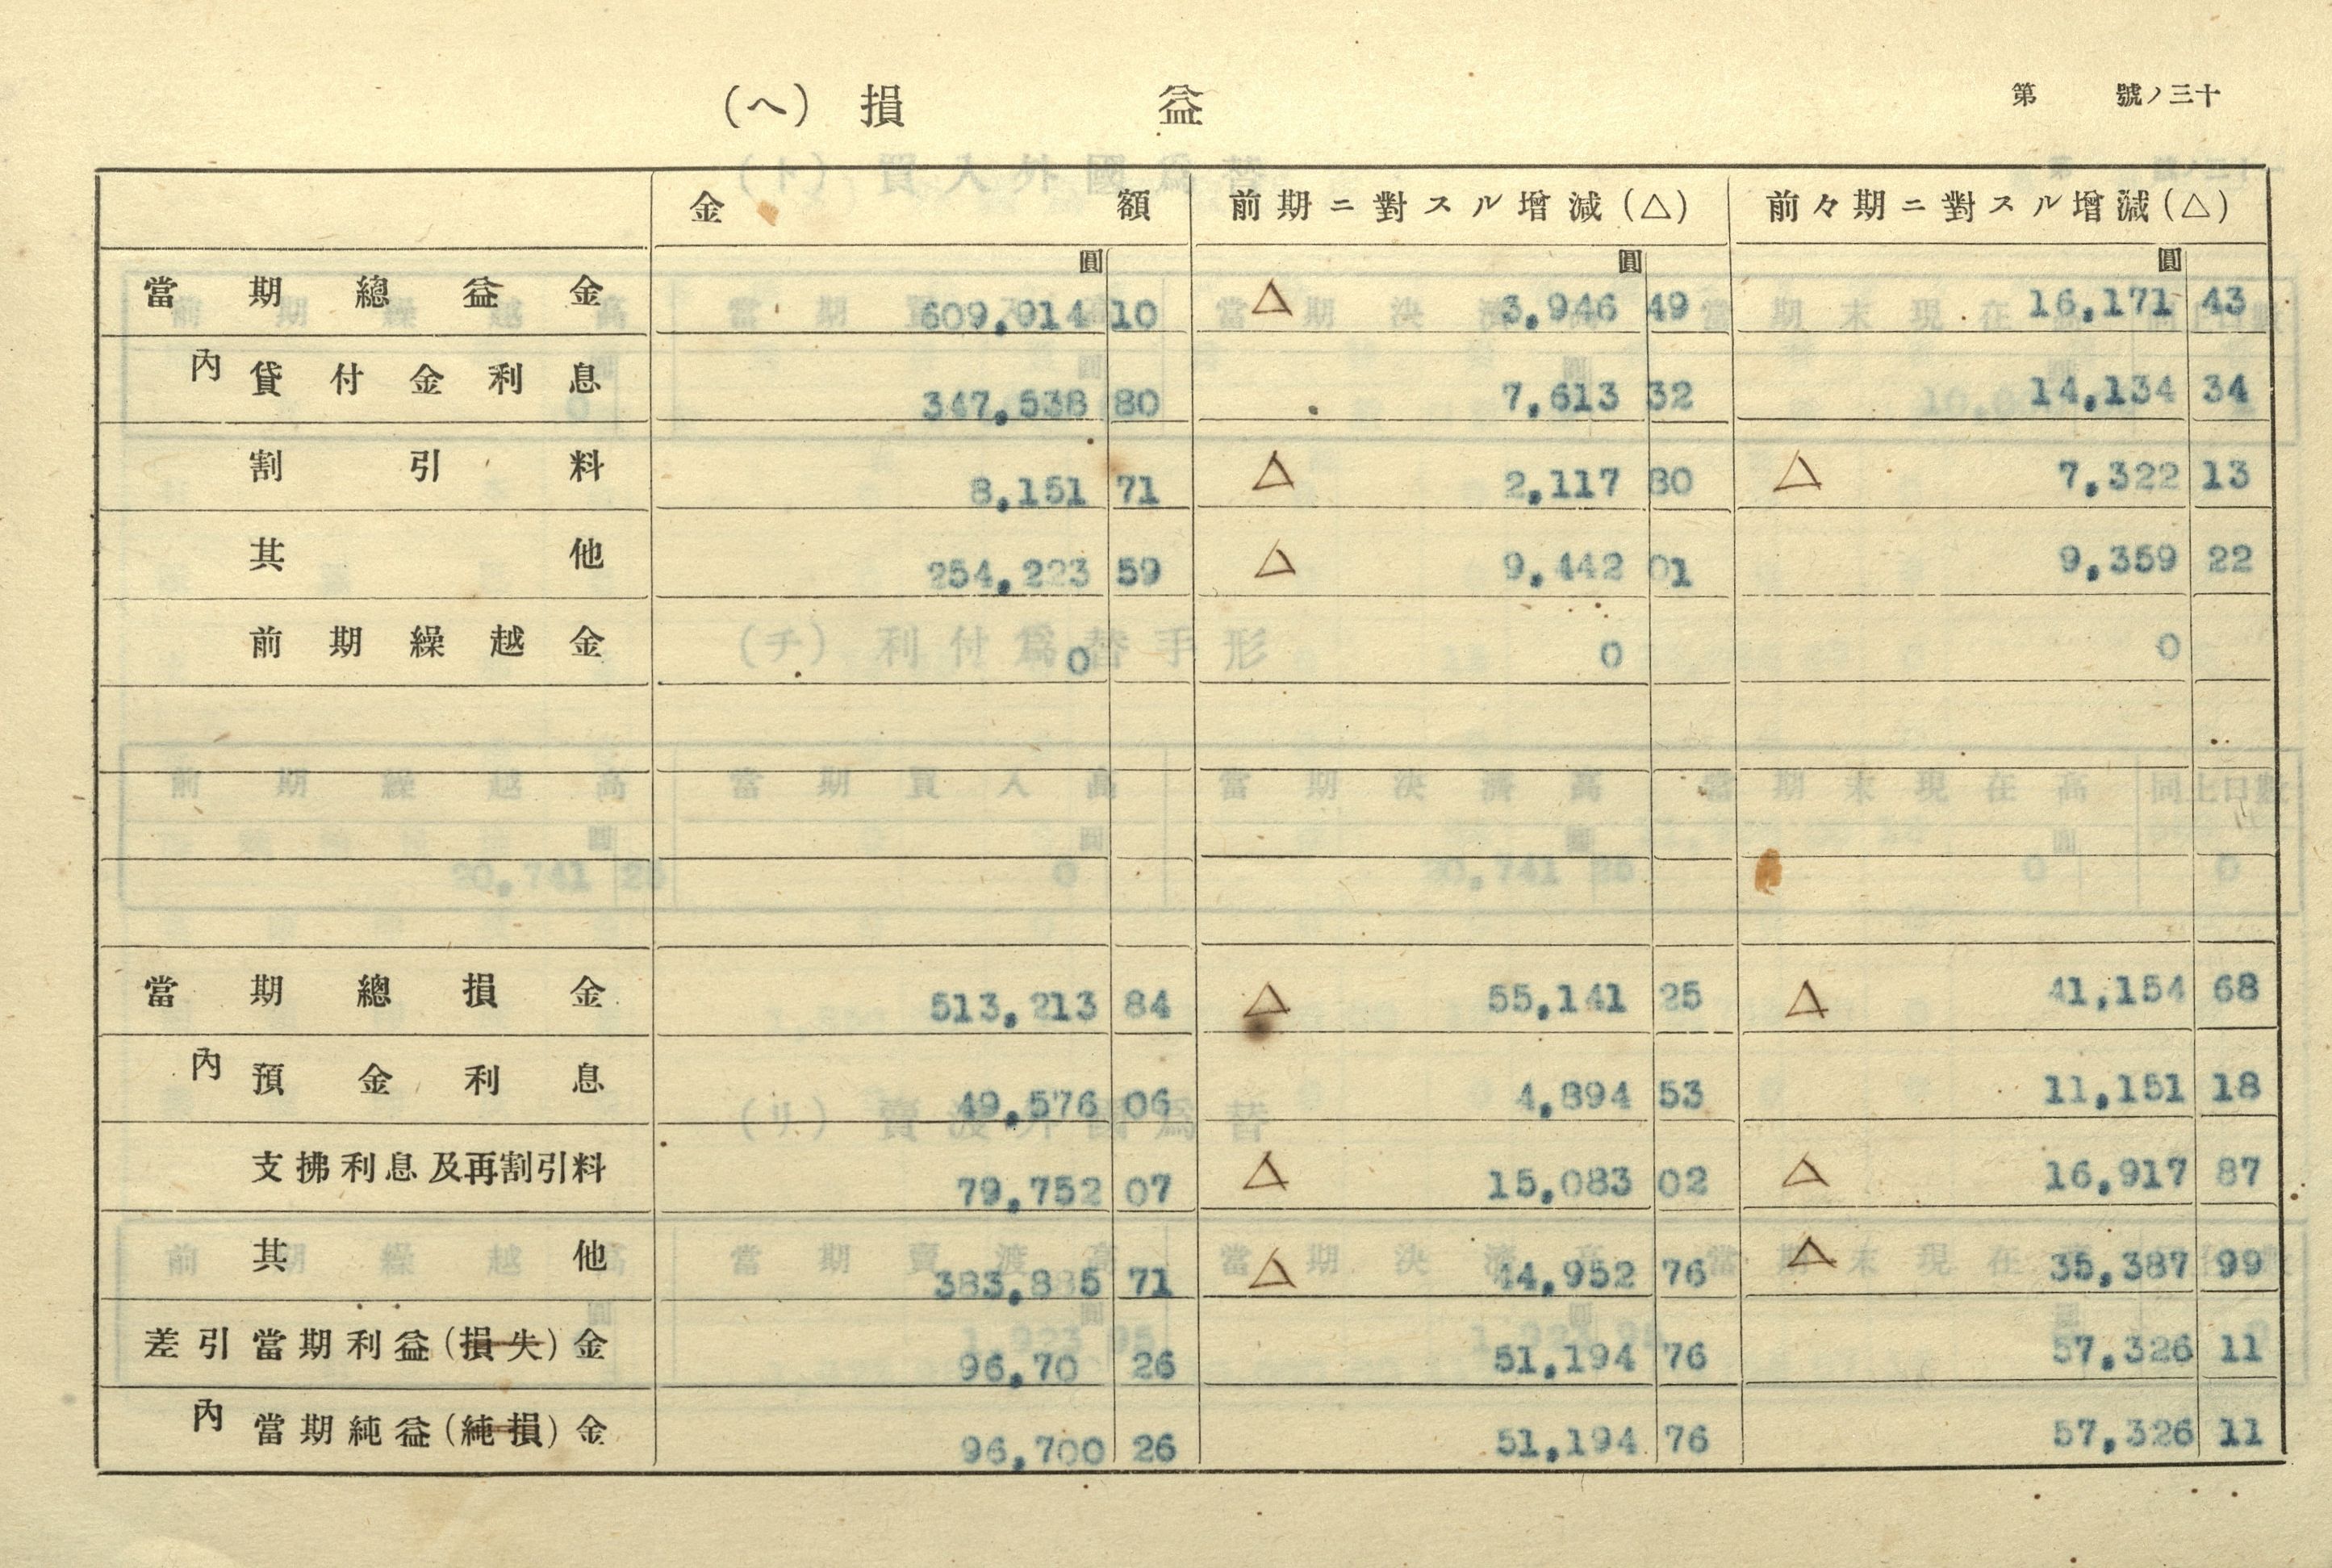 第 號ノ三十
(ヘ) 損 益
金 額 前期ニ對スル增減(△) 前々期ニ對スル增減(△)
圓 圓 圓
當期總益金 609,914 10 △ 3,946 49 16,171 43
內 貸付金利息 347,538 80 7,613 32 14,134 34
割引料 8,151 71 △ 2,117 80 △ 7,322 13
其他 254,223 59 △ 9,442 01 9,359 22
前期繰越金 0 0 0
當期總損金 513,213 84 △ 55,141 25 △ 41,154 68
內 預金利息 49,576 06 4,894 53 11,151 18
支拂利息及再割引料 79,752 07 △ 15,083 02 △ 16,917 87
其他 383,885 71 △ 44,952 76 △ 35,387 99
差引當期利益(損失)金 96,70 26 51,194 76 57,326 11
內 當期純益(純損)金 96,700 26 51,194 76 57,326 11